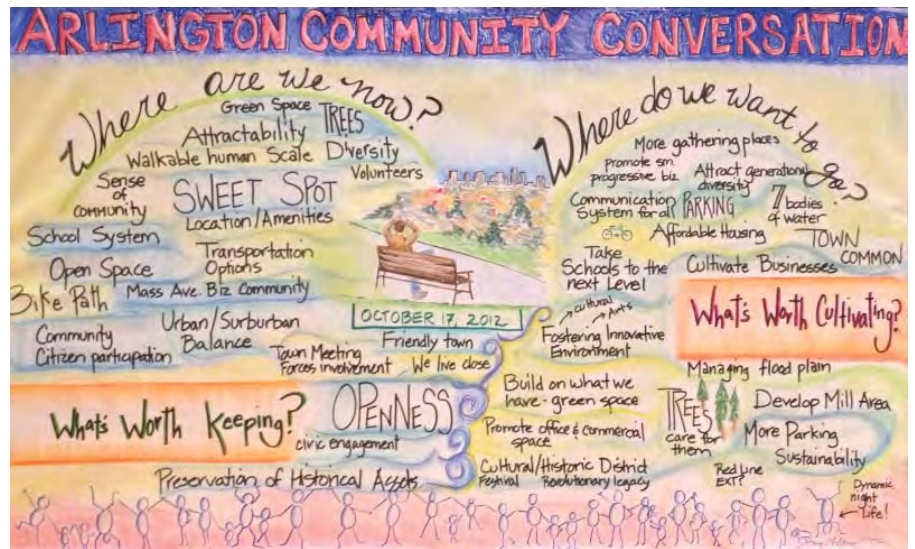 ARLINGTON COMMUNITY CONVERSATION
Where are we now?
Green Space
TREES
Attractability
Diversity
Walkable human Scale
Volunteers
Sense
of
community
SWEET SPOT
Location/Amenities
School System
Transportation
Options
Open Space
Bike Path
Mass Ave. Biz Community
Community
Citizen participation
Urban/Surburban
Balance
Town Meeting
Forces involvement
Friendly town
We live close
OCTOBER 17, 2012
What's Worth Keeping?
OPENNESS
civic engagement
Preservation of Historical Assets
Where do we want to go?
More gathering places
promote sm.
progressive biz
Attract generational
diversity
Communication
System for all
PARKING
7 bodies
of water
Affordable Housing
TOWN
COMMON
Take
Schools to the
next Level
Cultivate Businesses
cultural
Arts
Fostering Innovative
Environment
What's Worth Cultivating?
Managing flood plain
Build on what we
have - green space
TREES
care for
them
Develop Mill Area
Promote office & commercial
space
More Parking
Sustainability
Cultural/Historic District
Festival Revolutionary legacy
Red Line
EXT?
Dynamic
night
Life!